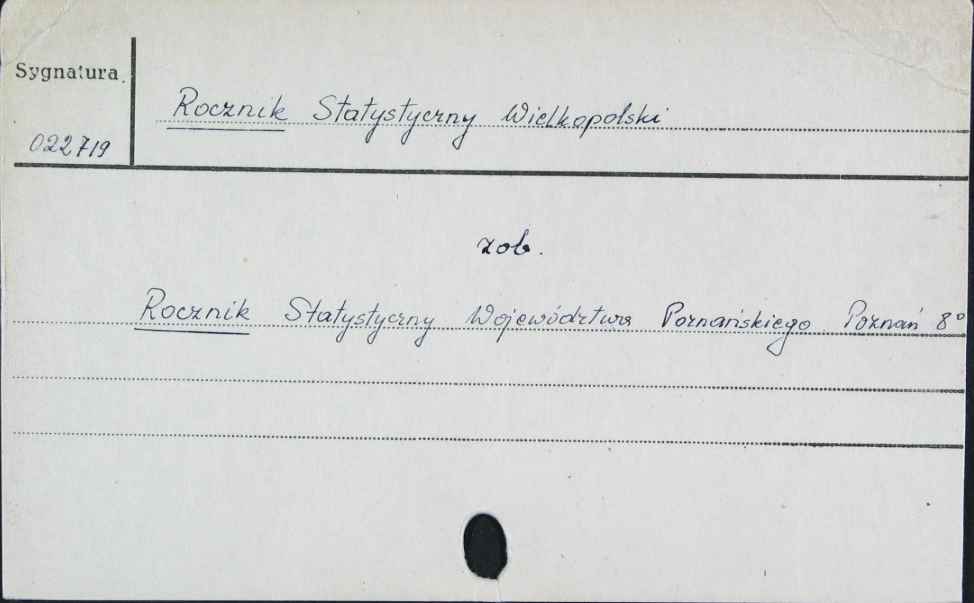 Sygnatura
Rocznik Statystyczny Wielkopolski
022719
zob.
Rocznik Statystyczny Województwa Poznańskiego. Poznań 8°